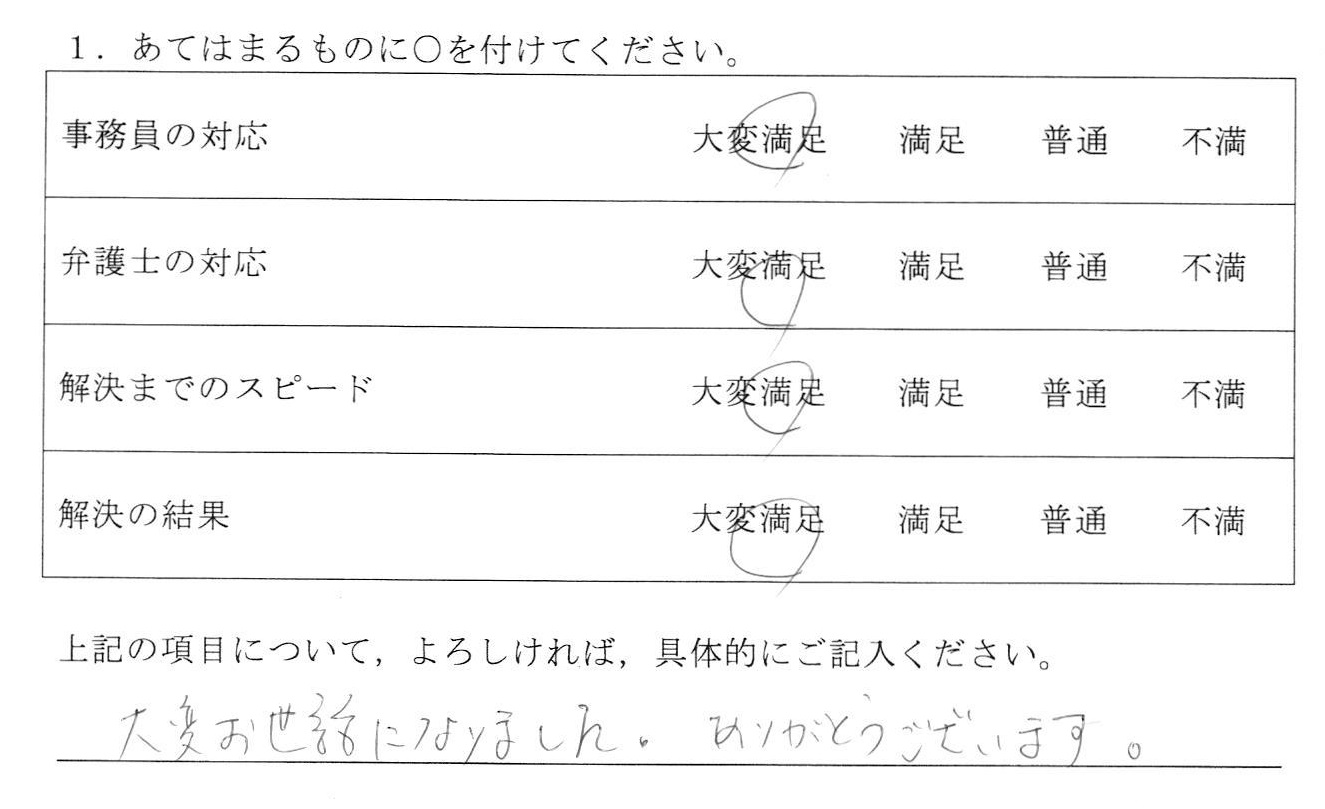 1．あてはまるものに○を付けてください。
事務員の対応 大変満足 満足 普通 不満
弁護士の対応 大変満足 満足 普通 不満
解決までのスピード 大変満足 満足 普通 不満
解決の結果 大変満足 満足 普通 不満
上記の項目について，よろしければ，具体的にご記入ください。
大変お世話になりました。ありがとうございます。